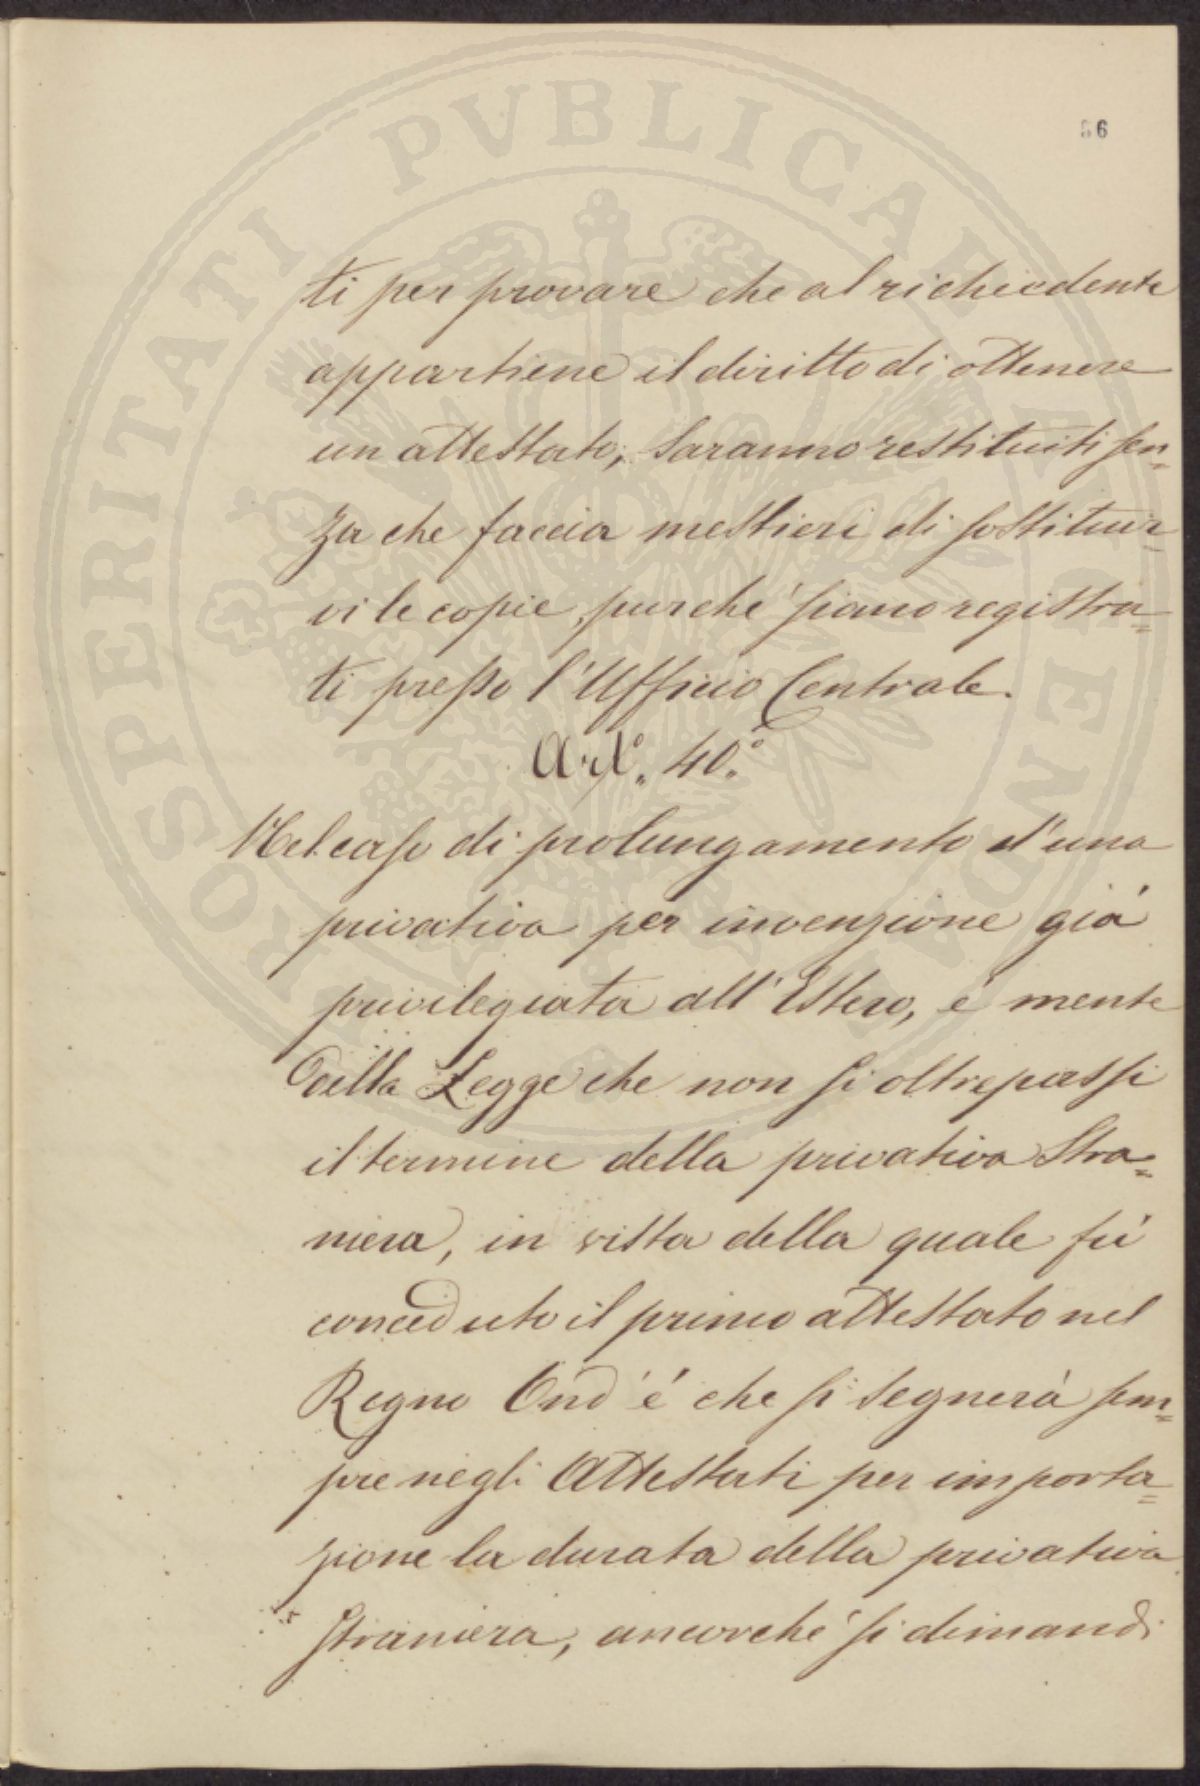 PROSPERITATI PVBLICAE AVGENDAE
56
ti per provare che al richiedente
appartiene il diritto di ottenere
un attestato, saranno restituiti sen=
za che faccia mestieri di sostituir=
vi le copie, purché siano registra=
ti presso l'Ufficio Centrale.
Art.º 40.º
Nel caso di prolungamento d'una
privativa per invenzione già
privilegiata all'Estero, é mente
della Legge che non si oltrepassi
il termine della privativa Stra=
niera, in vista della quale fú
conceduto il primo attestato nel
Regno Ond'é che si segnerà sem=
pre negli Attestati per importa=
zione la durata della privativa
straniera, ancorché si dimandi